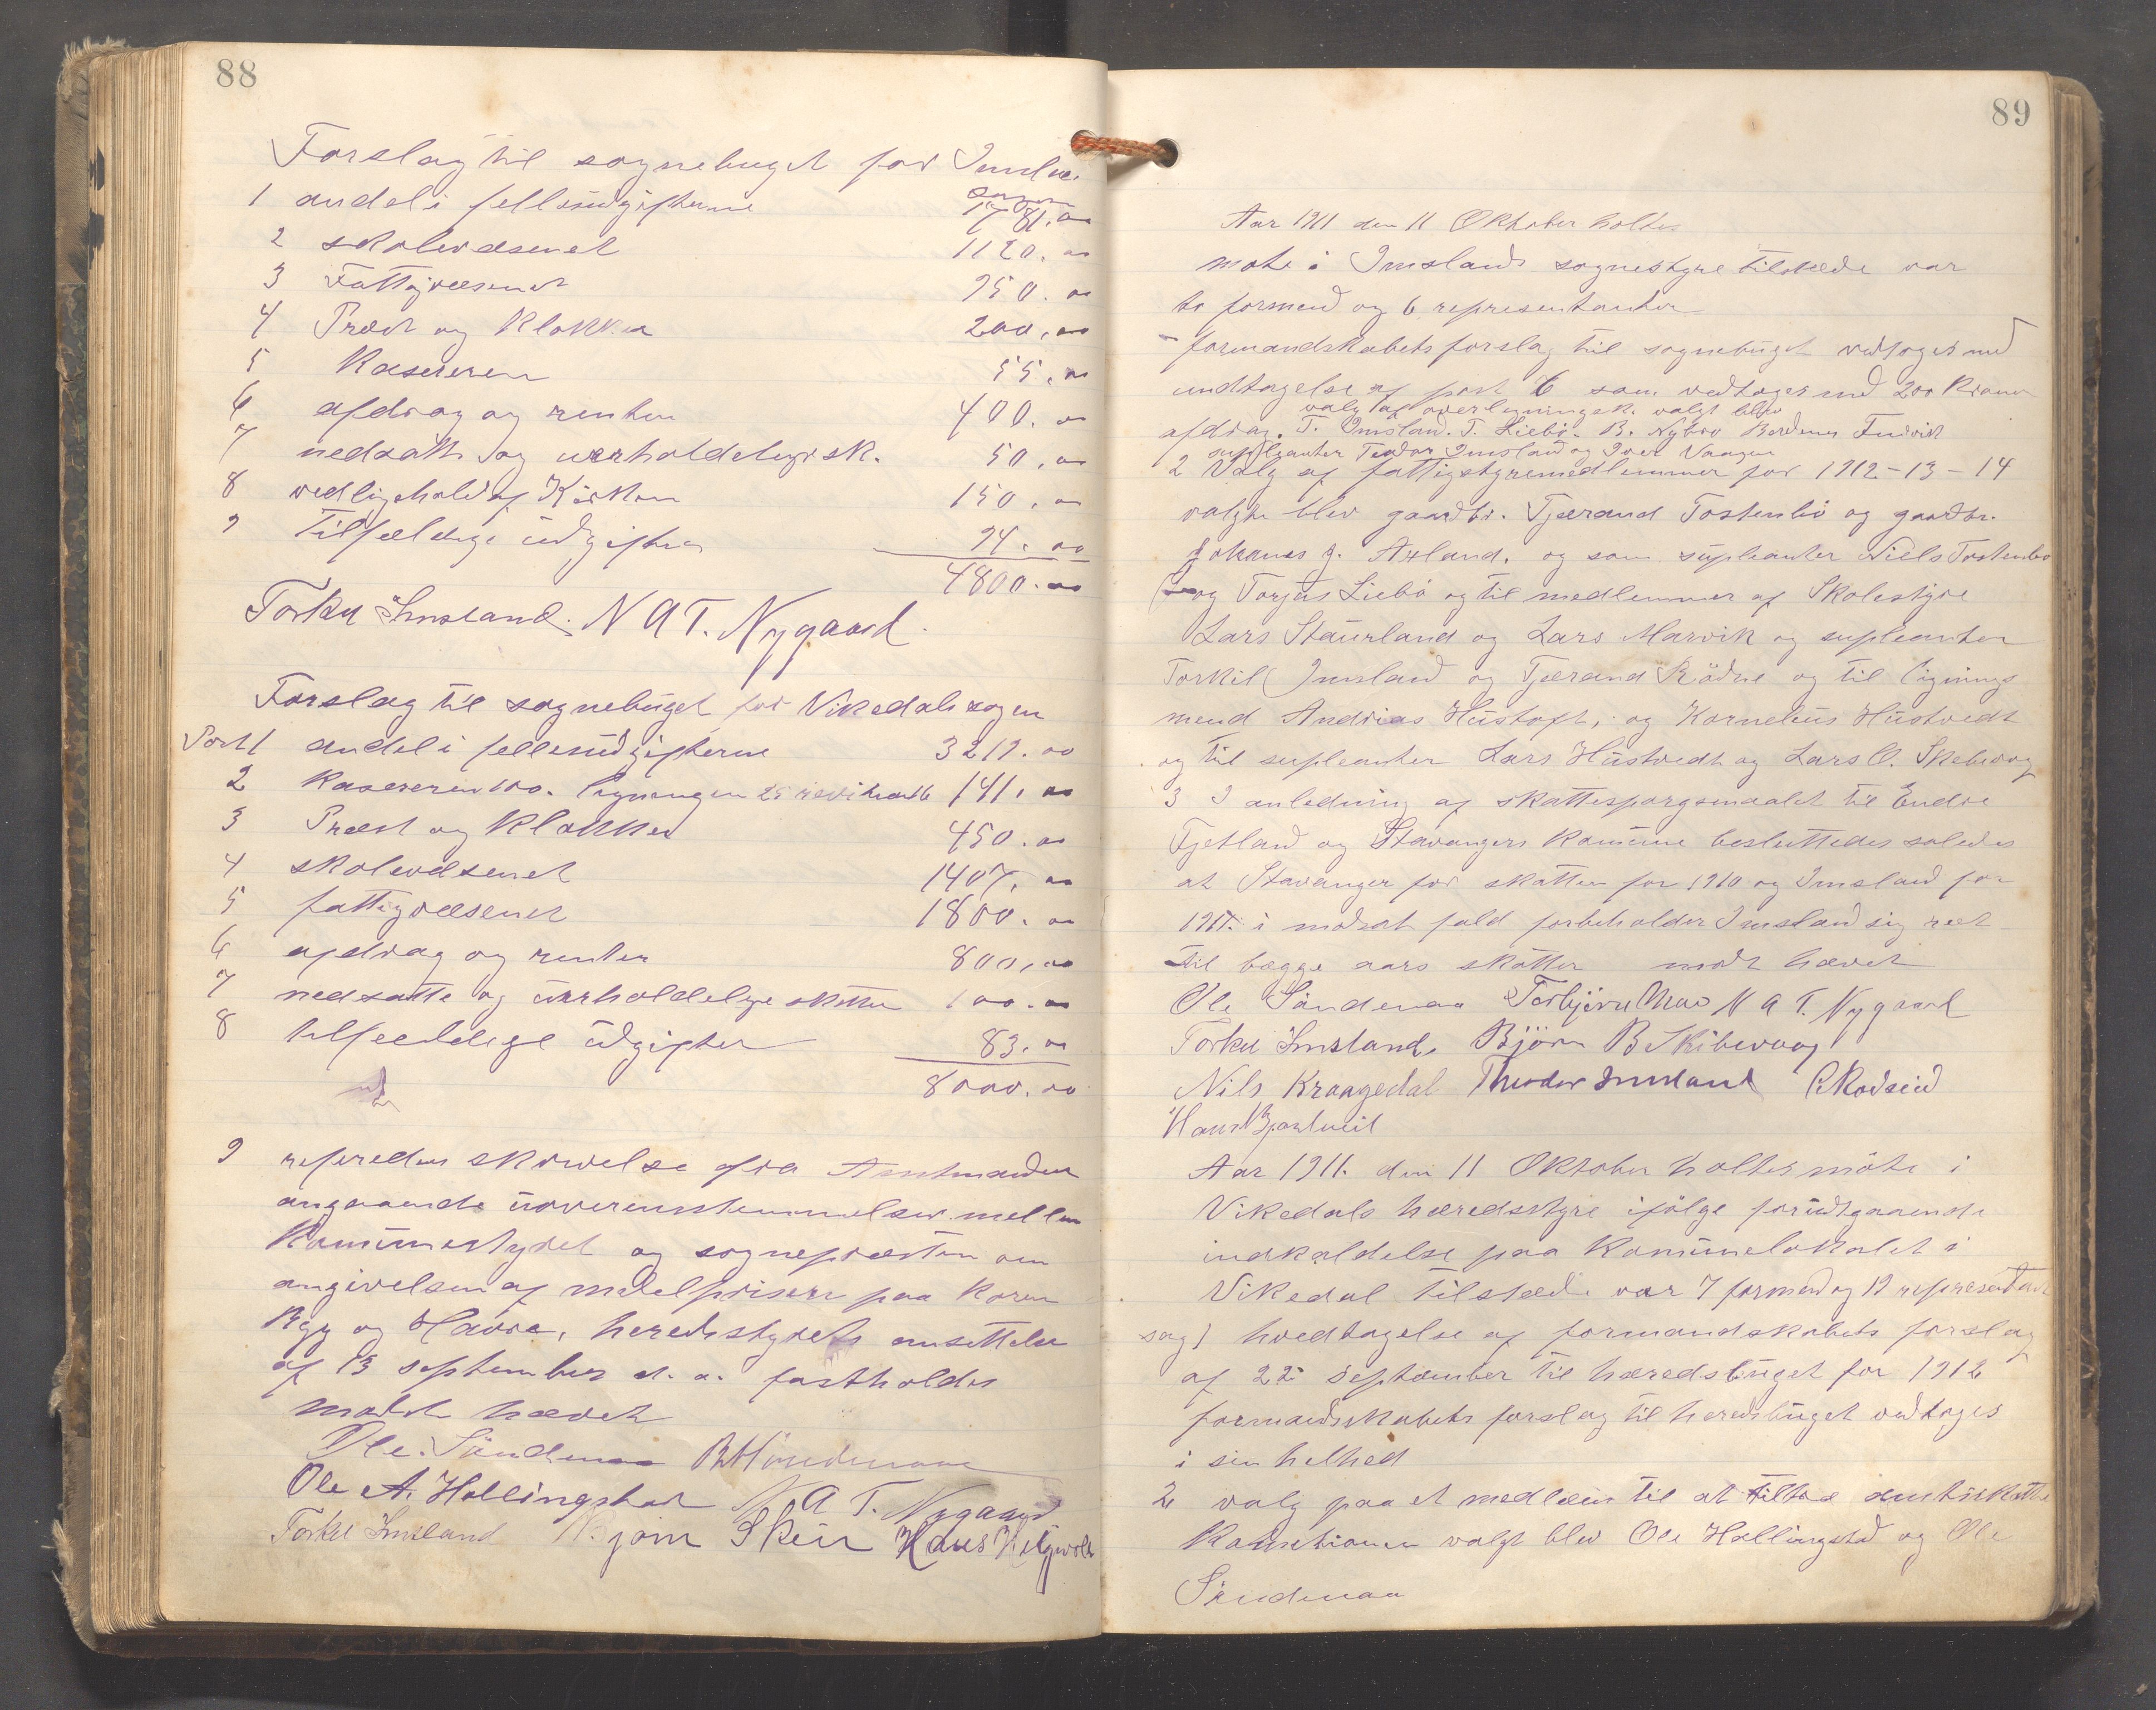 88
Forslag til sognebuget for Imslan
sogn
1 andel i fellsudgifterne 1781.00
2 skolevæsenet 1120.00
3 Fattigvæsenet 950.00
4 Præst og Klokker 200.00
5 Kasereren 55.00
6 afdrag og renter 400.00
7 nedsatte og uerholdelige sk. 50.00
8 vedligehold af Kirken 150.00
9 Tilfældige udgifter 94.00
4800.00
Torkel Imsland. N A T. Nygaard.
Forslag til sognebuget for Vikedals sogn
Post 1 andel i fellesudgifterne 3219.00
2 Kasereren 100. ligningen 25 141.00
3 Præst og Klokker 450.00
4 skolevæsenet 1407.00
5 fattigvæsenet 1800.00
6 afdrag og renter 800.00
7 nedsatte og uerholdelige skatter 100.00
8 tilfeeldige udgifter 83.00
8000.00
9 refereredes skrivelse fra Amtmanden
angaaende uoverensstemmelser mellem
Komunestyret og sognepræsten om
angivelsen af medelprisen paa Koren
Byg og Havre, heredsstyrets ansettelse
af 13 september d. a. fastholdes
motet hævet
Ole Söndenaa
Ole A. Hollingstad N A T. Nygaard
Torkel Imsland Bjørn Skeie Hans
89
Aar 1911 den 11 Oktober holtes
mote i Imslands sognestyre tilstæde var
to formend og 6 representanter
formandskabets forslag til sognebuget vedtoges med
undtagelse af post 6 som vedtoges med 200 Kroner
valg af overligningsk. valgt blev
afdrag. T. Imsland. T. Liebö. B. Nybro
supleanter Teodor Imsland og Iver Vaagen
2 Valg af fattigstyremedlemmer for 1912-13-14
valgte blev gaardbr. Tjærand Tostenbö og gaardbr.
Johanes J. Axland. og som supleanter Niels Tostenbö
og Torjus Liebö og til medlemmer af Skolestyre
Lars Staurland og Lars Marvik og supleanter
Torkil Imsland og Tjærand Rödne og til lignings
mend Andrias Hustoft, og Kornelius Hustvedt
og til supleanter Lars Hustvedt og Lars O. Skebevaag
3 I anledning af skattespørgsmaalet til Endre
Fjetland og Stavangers Komune besluttedes saledes
at Stavanger for skatten for 1910 og Imsland for
1911. i modsat fald forbeholder Imsland sig ret
til begge aars skatter mode hævet
Ole Söndenaa Torbjörn N A T. Nygaard
Torkel Imsland. Björn B Skibevaag
Nils Kraagedal Theodor Imsland
Hans
Aar 1911. den 11 Oktober holtes möte i
Vikedals hæredsstyre ifölge forudtgaaende
indkaldelse paa Komunelokalet i
Vikedal tilstæde var 7 formend og 12 representant
sag 1 hvedtagelse af formandskabets forslag
af 22 september til hæredsbuget for 1912
formandsskabets forslag til heredsbuget vedtoges
i sin helhed
2 valg paa et medlem til at tiltræ amtsskatte
Komitionen valgt blev Ole Hollingstad og Ole
Söndenaa